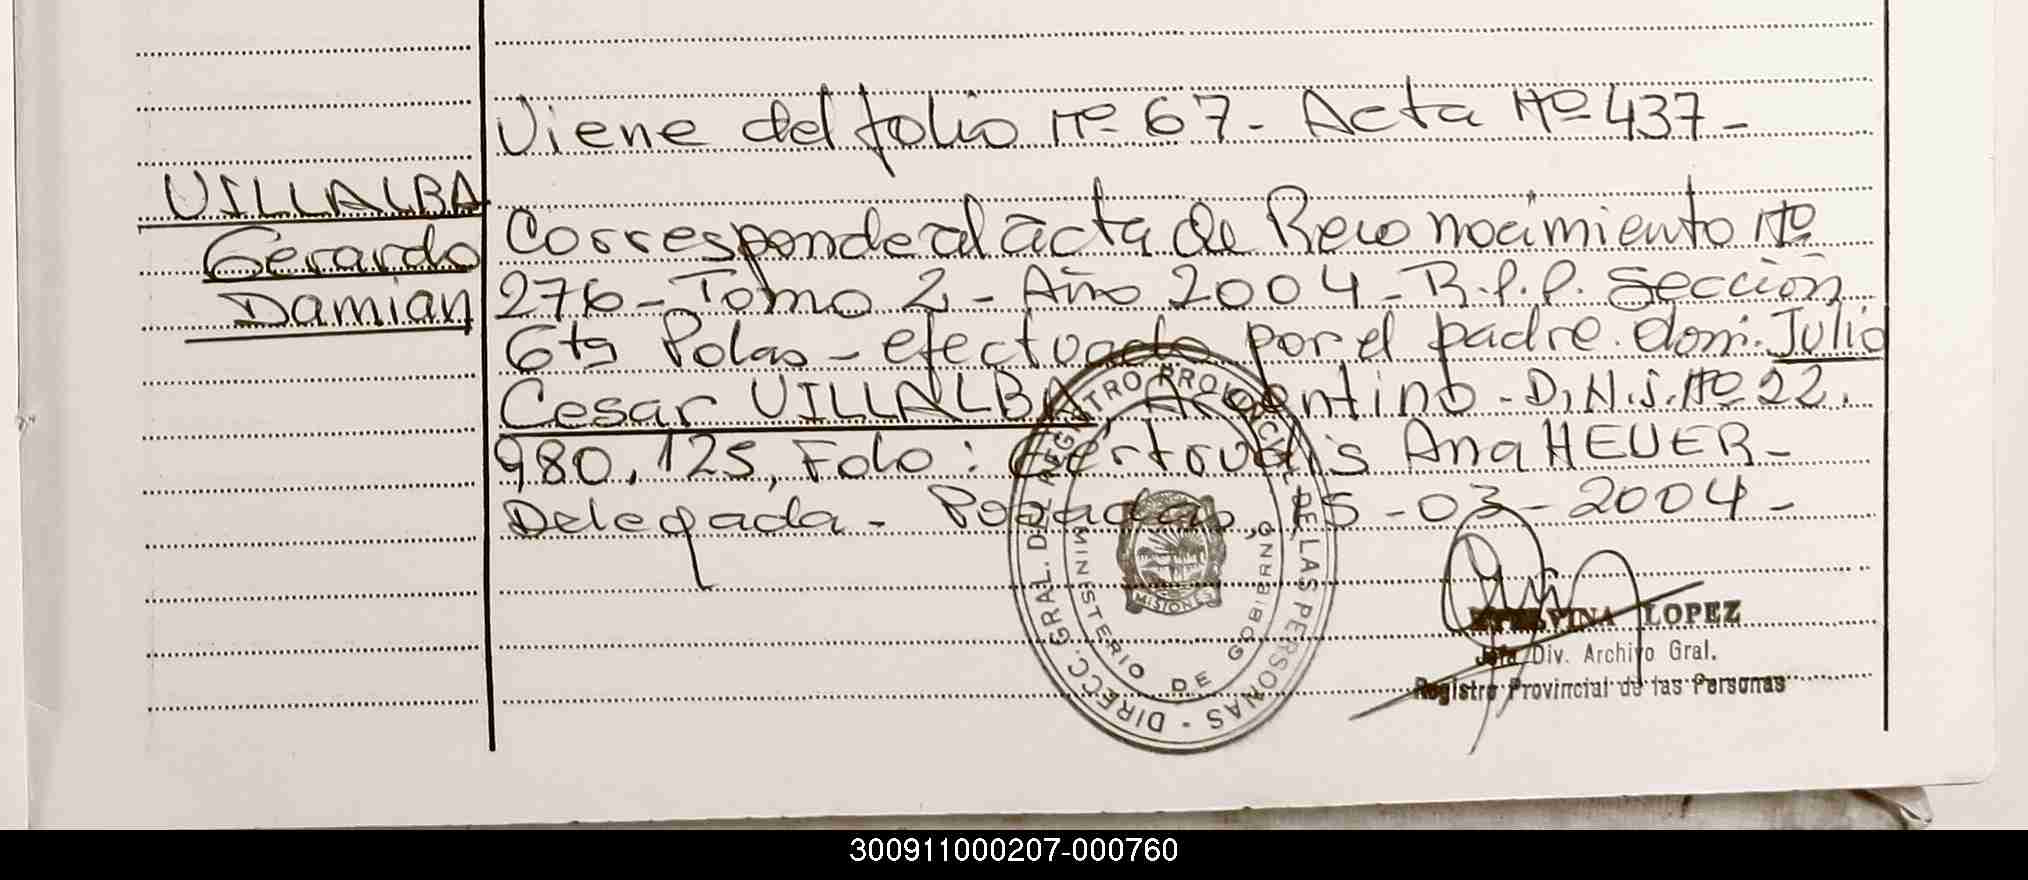 Viene del folio Nº 67 - Acta Nº 437 -
VILLALBA
Gerardo
Damian
Corresponde al acta de Reconocimiento Nº
276 - Tomo 2 - Año 2004 - R.P.P. Sección
6ta Pdas - efectuado por el padre. don: Julio
Cesar VILLALBA, Argentino - D.N.I. Nº 22.
980.125, Fdo: Gertrudis Ana HEUER -
Delegada - Posadas, 15 - 03 - 2004 -
DIRECC. GRAL. DEL REGISTRO PROVINCIAL DE LAS PERSONAS -
MINISTERIO DE GOBIERNO
MISIONES
ETELVINA LOPEZ
Jefa Div. Archivo Gral.
Registro Provincial de las Personas
300911000207-000760